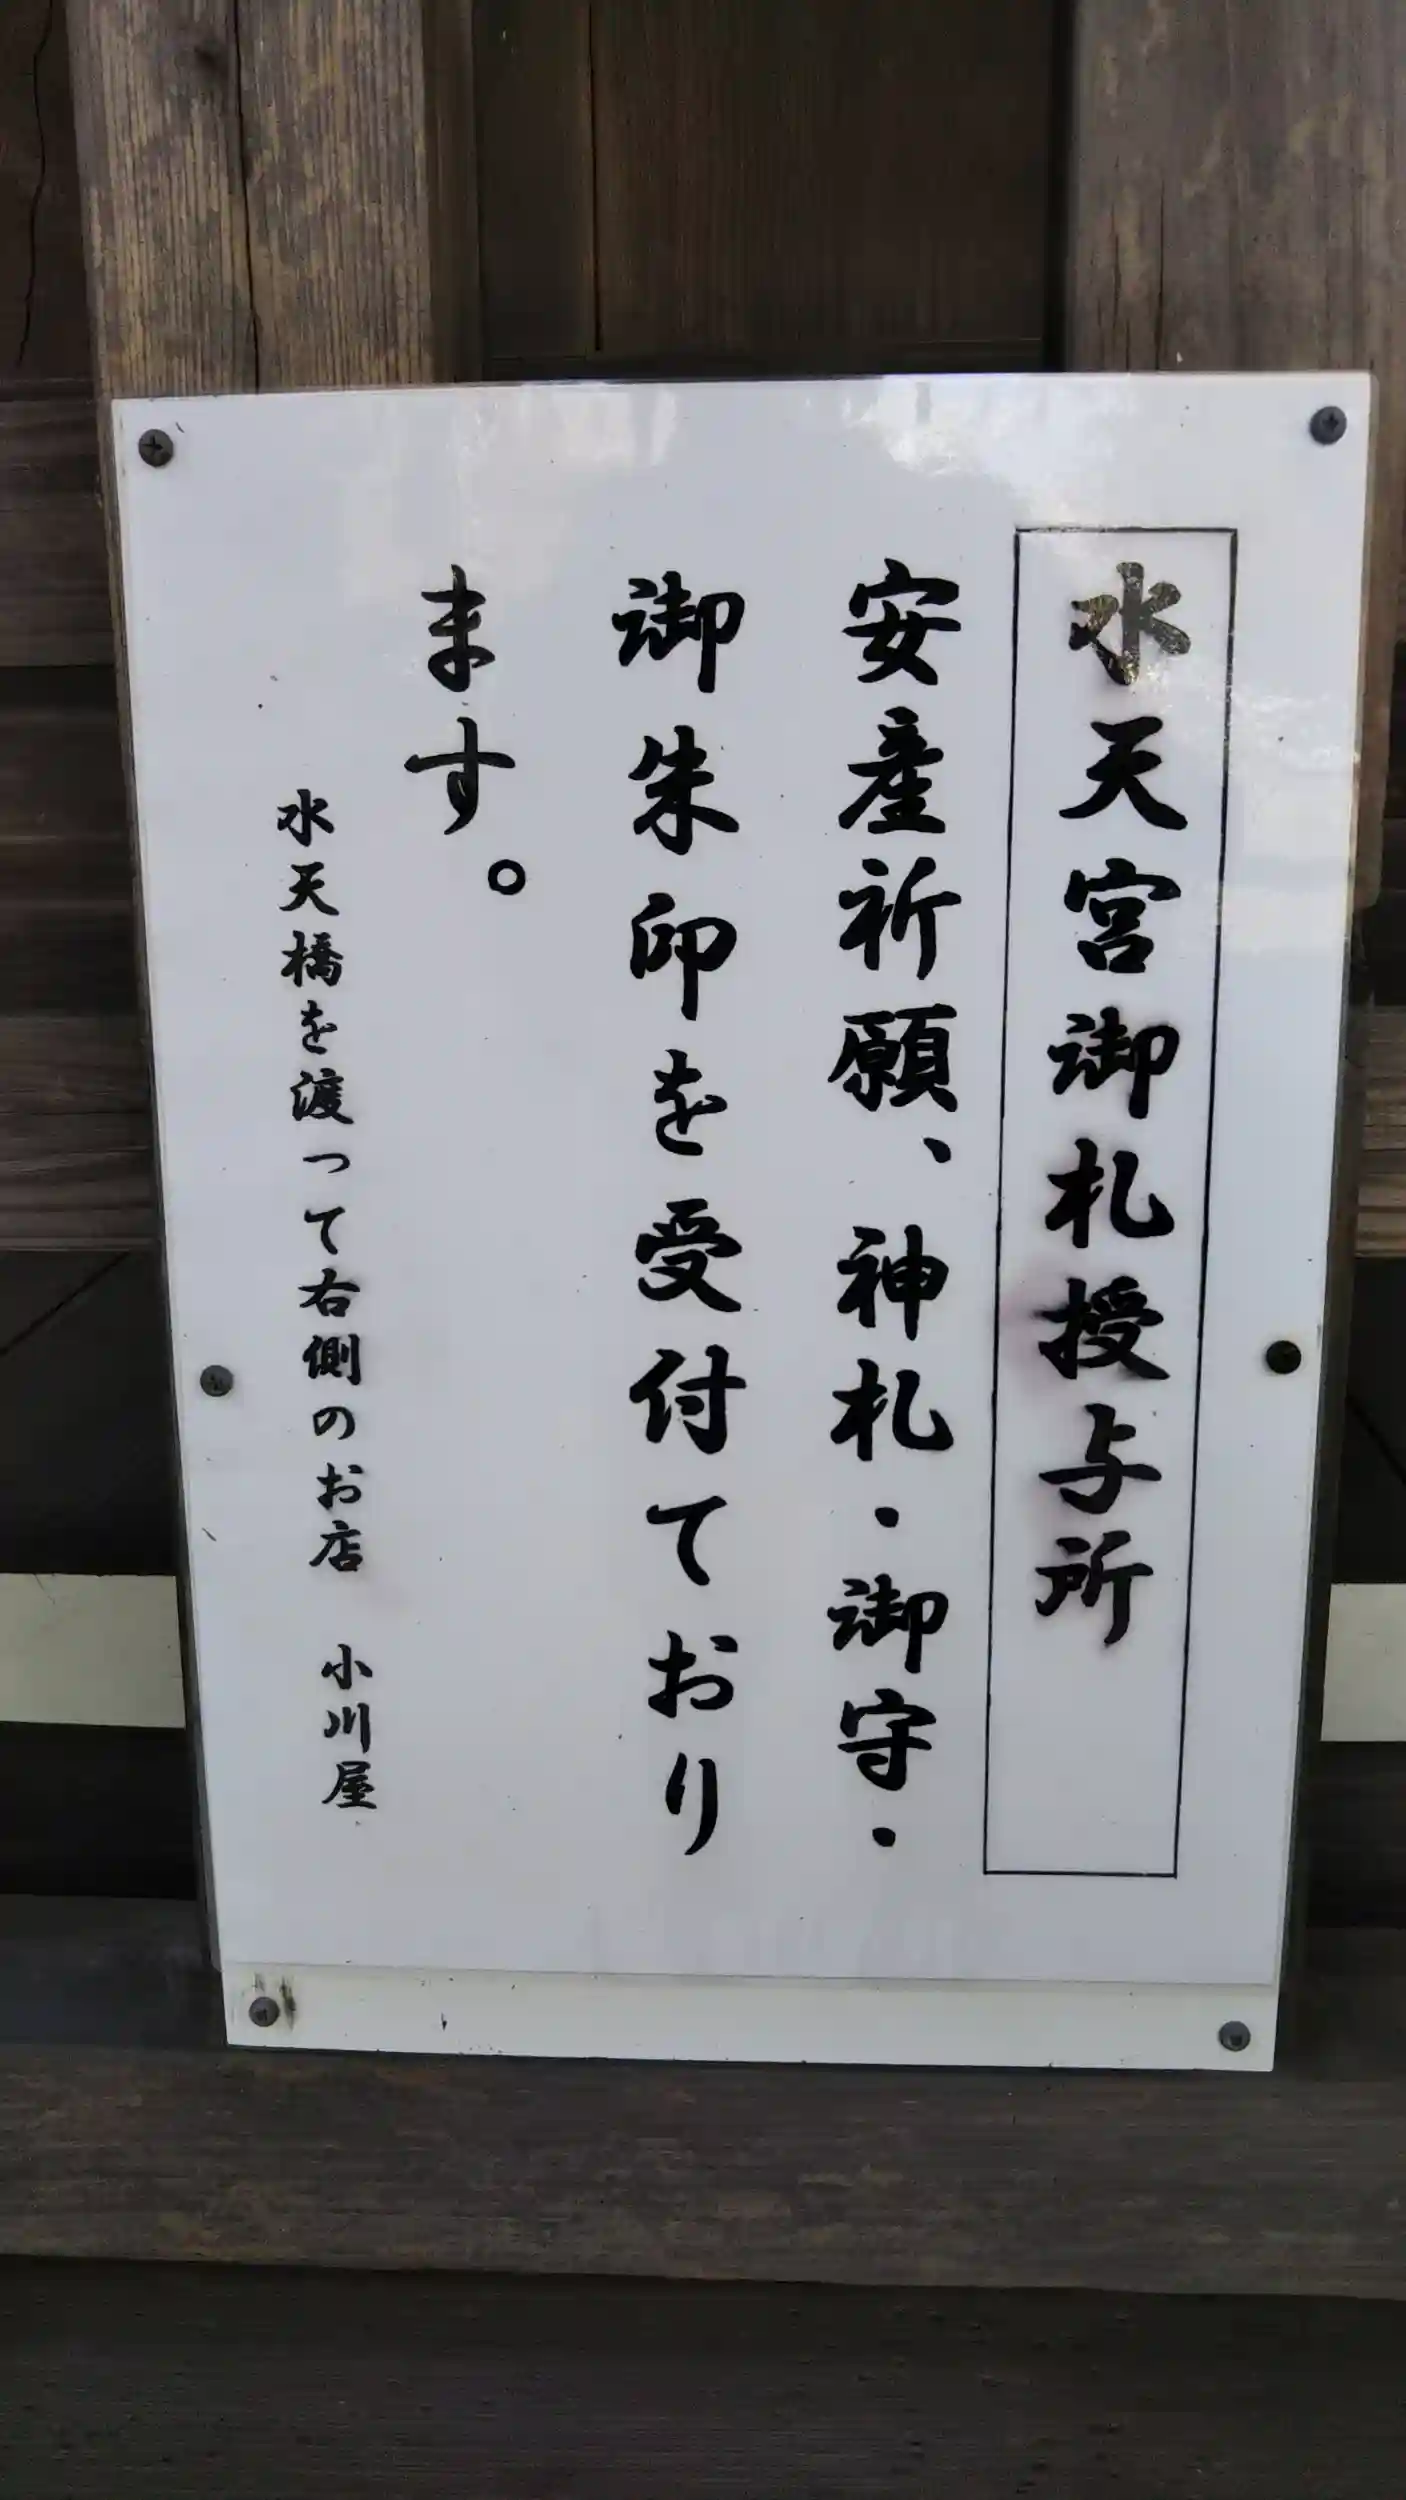 水天宮御札授与所
安産祈願、神札・御守・
御朱印を受付ており
ます。
水天橋を渡って右側のお店 小川屋